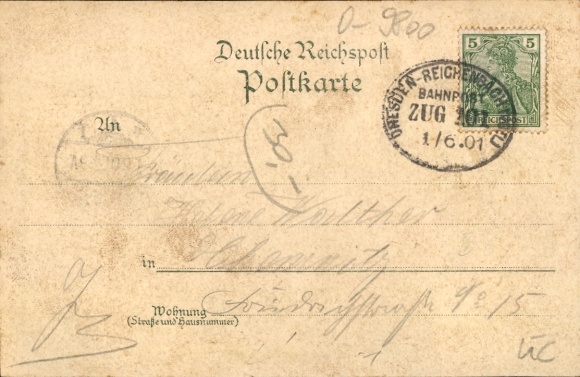 0-9800
Deutsche Reichspost
Postkarte
5 5
REICHSPOST
DRESDEN-REICHENBACH
BAHNPOST
ZUG 101
1/6.01
An
30,-
Fräulein
Helene Walther
in Chemnitz
Wohnung
(Straße und Hausnummer)
Friedrichstraße No 15